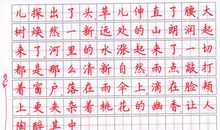 儿探出了头草儿伸直了腰大
树焕然一新远处的山朗润起
来了河里的水涨起来了一切
都是那么清新自然雨点敲打
着窗户落在雨伞上滴在脸颊
上更夹杂着桃花的幽香让人
陶醉其中